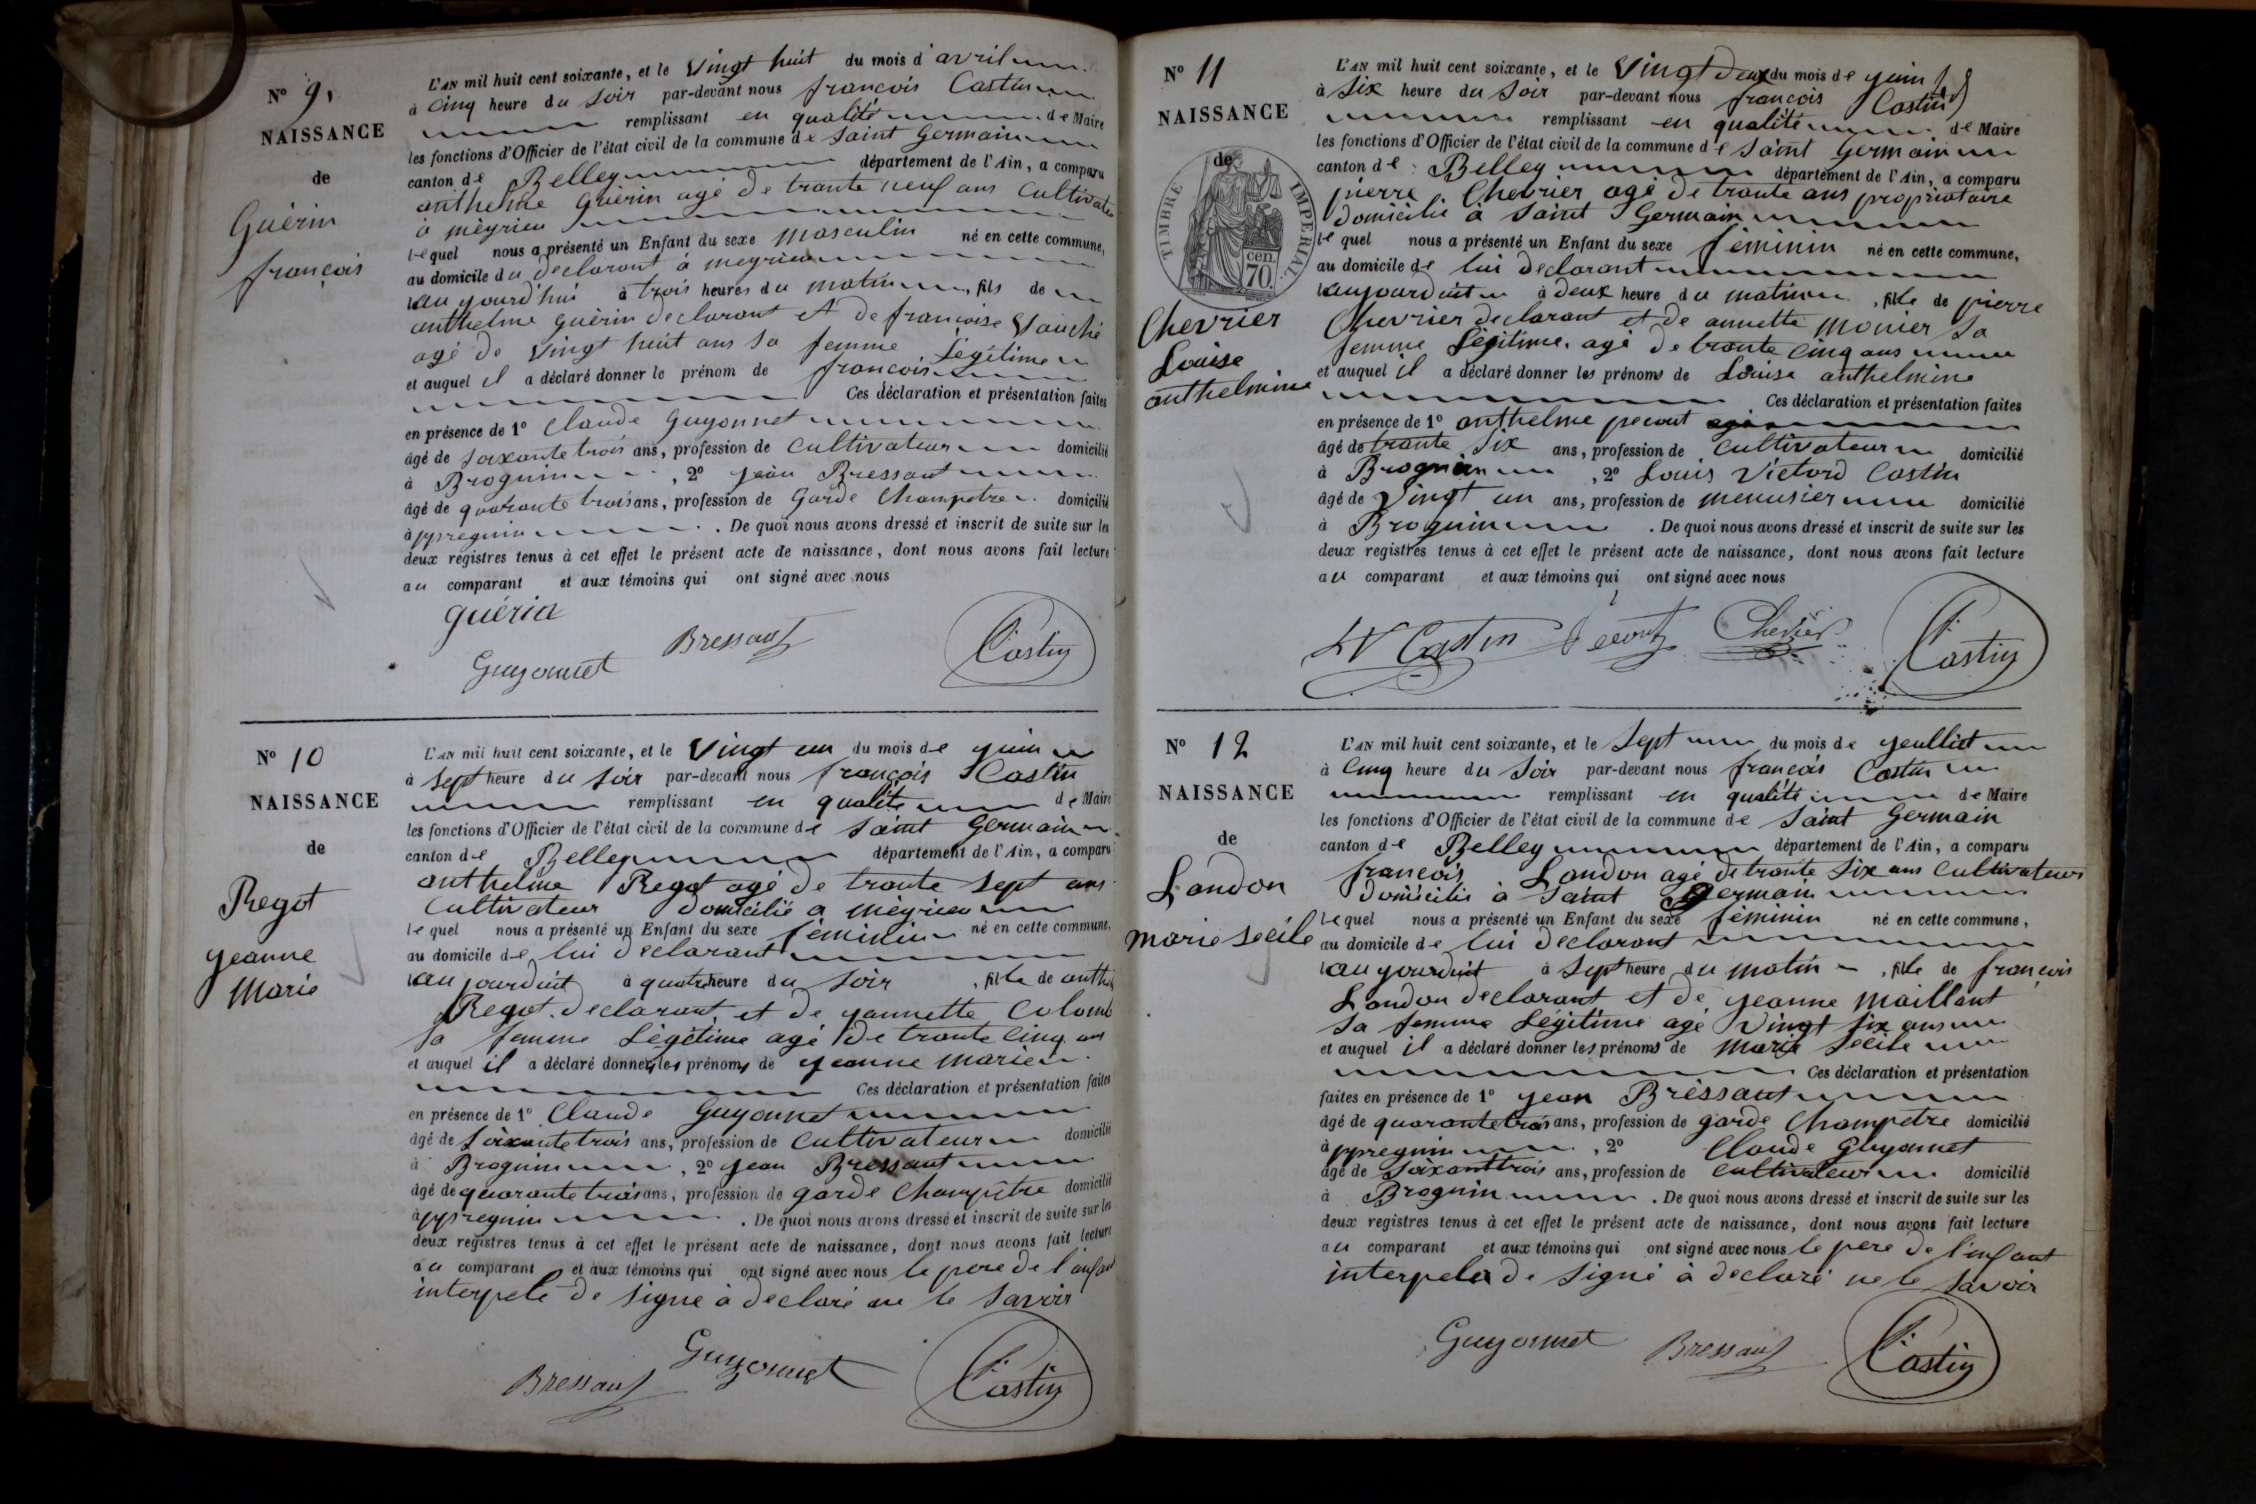 N° 9,
NAISSANCE
de
Guérin
françois
L'AN mil huit cent soixante, et le Vingt huit du mois d'avril
à Cinq heure du Soir par-devant nous françois Castin
remplissant en qualité de Maire
les fonctions d'Officier de l'état civil de la commune de Saint Germain
canton de Belley département de l'Ain, a comparu
anthelme Guérin agé de trante neuf ans Cultivateu
à mèyrieu
lequel nous a présenté un Enfant du sexe masculin né en cette commune,
au domicile du declarant à meyrieu
aujourd'hui à trois heures du matin, fils de
anthelme guérin declarant et de françoise
agé de vingt huit ans sa femme Légitime
et auquel il a déclaré donner le prénom de françois
Ces déclaration et présentation faites
en présence de 1° Claude Guyonnet
âgé de Soixante trois ans, profession de Cultivateur domicilié
à Brognin, 2° jean Bressaut
âgé de quarante trois ans, profession de Garde Champetre domicilié
à ppregnin. De quoi nous avons dressé et inscrit de suite sur les
deux registres tenus à cet effet le présent acte de naissance, dont nous avons fait lecture
au comparant et aux témoins qui ont signé avec nous
guérin
Bressaut
Guyonnet
Castin
N° 10
NAISSANCE
de
Regot
yeanne
Marie
L'AN mil huit cent soixante, et le Vingt un du mois de yuin
à Sept heure du Soir par-devant nous françois Castin
remplissant en qualité de Maire
les fonctions d'Officier de l'état civil de la commune de Saint Germain
canton de Belley département de l'Ain, a comparu
anthelme Regot agé de trante Sept ans
Cultivateur domicilié a mèyrieu
lequel nous a présenté un Enfant du sexe féminin né en cette commune,
au domicile de lui declarant
aujourduit à quatre heure du Soir, fille de anthe
Regot declarant et de yannette Colomb
Sa femme Légétime agé de trante Cinq ans
et auquel il a déclaré donner les prénoms de yeanne marie
Ces déclaration et présentation faites
en présence de 1° Claude Guyonnet
âgé de Soixante trois ans, profession de Cultivateur domicilié
à Brognin, 2° yean Bressaut
âgé de quarante trois ans, profession de garde Champêtre domicilié
à ppregnin. De quoi nous avons dressé et inscrit de suite sur les
deux registres tenus à cet effet le présent acte de naissance, dont nous avons fait lecture
au comparant et aux témoins qui ont signé avec nous le pere de l'anfant
interpele de signe à declaré ne le Savoir
Bressaut
Guyonnet
Castin
N° 11
NAISSANCE
de
TIMBRE IMPERIAL.
70. cen.
Chevrier
Louise
anthelmine
L'AN mil huit cent soixante, et le Vingt deux du mois de yuin
à Six heure du Soir par-devant nous françois Castin
remplissant en qualité de Maire
les fonctions d'Officier de l'état civil de la commune de Saint Germain
canton de Belley département de l'Ain, a comparu
pierre Chevrier agé de trante ans propriataire
domicilié à Saint Germain
lequel nous a présenté un Enfant du sexe féminin né en cette commune,
au domicile de lui declarant
aujourduit à deux heure du matin, fille de pierre
Chevrier declarant et de annette monier Sa
femme Légitime agé de trante cinq ans
et auquel il a déclaré donner les prénoms de Louise anthelmine
Ces déclaration et présentation faites
en présence de 1° anthelme
âgé de trante Six ans, profession de Cultivateur domicilié
à Brognin, 2° Louis Victord Castin
âgé de Vingt un ans, profession de menusier domicilié
à Brognin. De quoi nous avons dressé et inscrit de suite sur les
deux registres tenus à cet effet le présent acte de naissance, dont nous avons fait lecture
au comparant et aux témoins qui ont signé avec nous
LV Castin
Chevrier
Castin
N° 12
NAISSANCE
de
Landon
marie Sécile
L'AN mil huit cent soixante, et le Sept du mois de yeulliet
à Cinq heure du Soir par-devant nous françois Castin
remplissant en qualité de Maire
les fonctions d'Officier de l'état civil de la commune de Saint Germain
canton de Belley département de l'Ain, a comparu
françois Landon agé de trante Six ans Cultivateur
domicilié à Saint Germain
lequel nous a présenté un Enfant du sexe féminin né en cette commune,
au domicile de lui declarant
aujourduit à Sept heure du matin, fille de françois
Landon declarant et de yeanne maillant
Sa femme Légitime agé Vingt Six ans
et auquel il a déclaré donner les prénoms de marie Sécile
Ces déclaration et présentation
faites en présence de 1° yean Bressaut
âgé de quarante trois ans, profession de garde Champetre domicilié
à ppregnin, 2° Claude Guyonnet
âgé de Soixante trois ans, profession de Cultivateur domicilié
à Brognin. De quoi nous avons dressé et inscrit de suite sur les
deux registres tenus à cet effet le présent acte de naissance, dont nous avons fait lecture
au comparant et aux témoins qui ont signé avec nous le pere de l'enfant
interpele de signé à declaré ne le Savoir
Guyonnet
Bressaut
Castin